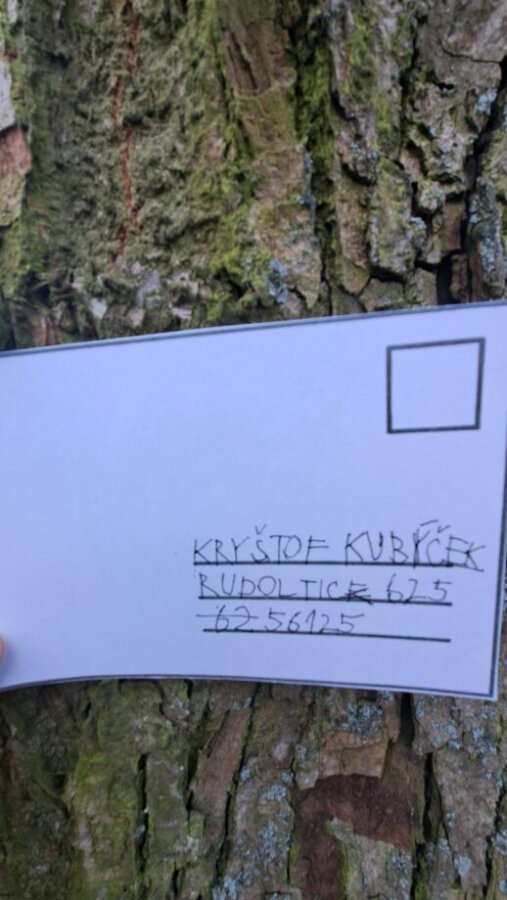 KRYŠTOF KUBÝČEK
RUDOLTICE 625
62 56125